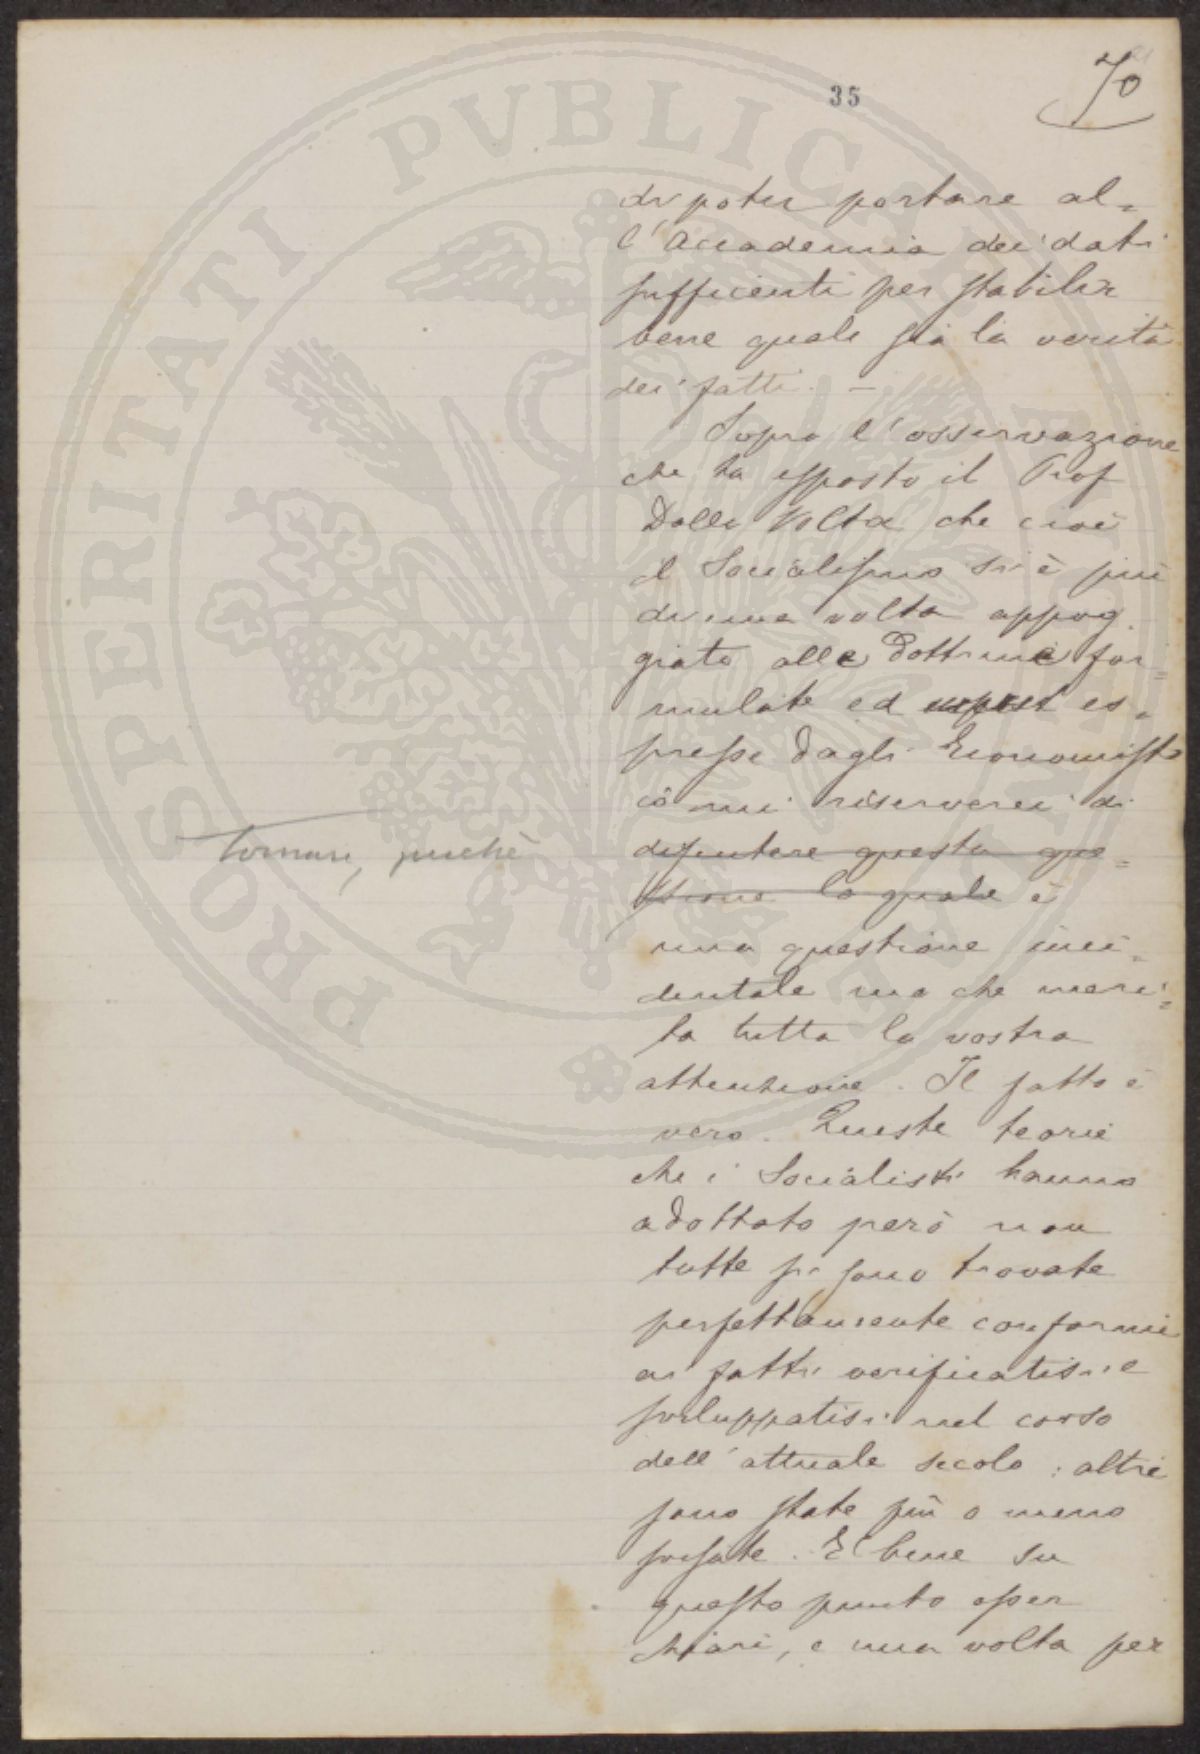 35
70
di poter portare al=
l'Accademia dei dati
sufficienti per stabilir
bene quale sia la verità
dei fatti. —
Sopra l'osservazione
che ha esposto il Prof
Dalla Volta che cioè
il Socialismo si è più
di una volta appog.
giato alle Dottrine for=
mulate ed es=
presse dagli Economisti
io mi riserverei di
discutere questa que=
stione la quale è
Tornare, perchè
una questione inci=
dentale ma che meri=
ta tutta la vostra
attenzione. Il fatto è
vero. Queste teorie
che i Socialisti hanno
adottato però non
tutte si sono trovate
perfettamente conformi
ai fatti verificatisi e
sviluppatisi nel corso
dell'attuale secolo: altre
sono state più o meno
sfisate. E' bene su
questo punto esser
chiari, e una volta per
PROSPERITATI PVBLICAE AVGENDAE